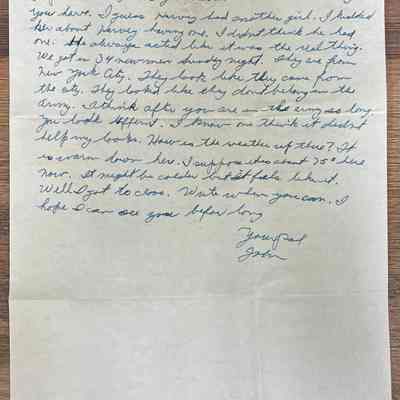 you have. I guess Harvey had another girl. I kidded
her about Harvey having one. I didn't think he had
one. He always acted like it was the real thing.
We got in 34 new men Sunday night. They are from
New York City. They look like they came from
the city. They looks like they dont belong in the
Army. I think after you are in the army so long
you look different. I know one think it didn't
help my looks. How is the weather up there? It
is warm down her. I suppose its about 75° here
now. It might be colder but it feels like it.
Well I got to close. Write when you can. I
hope I can see you befor long
Your pal
John